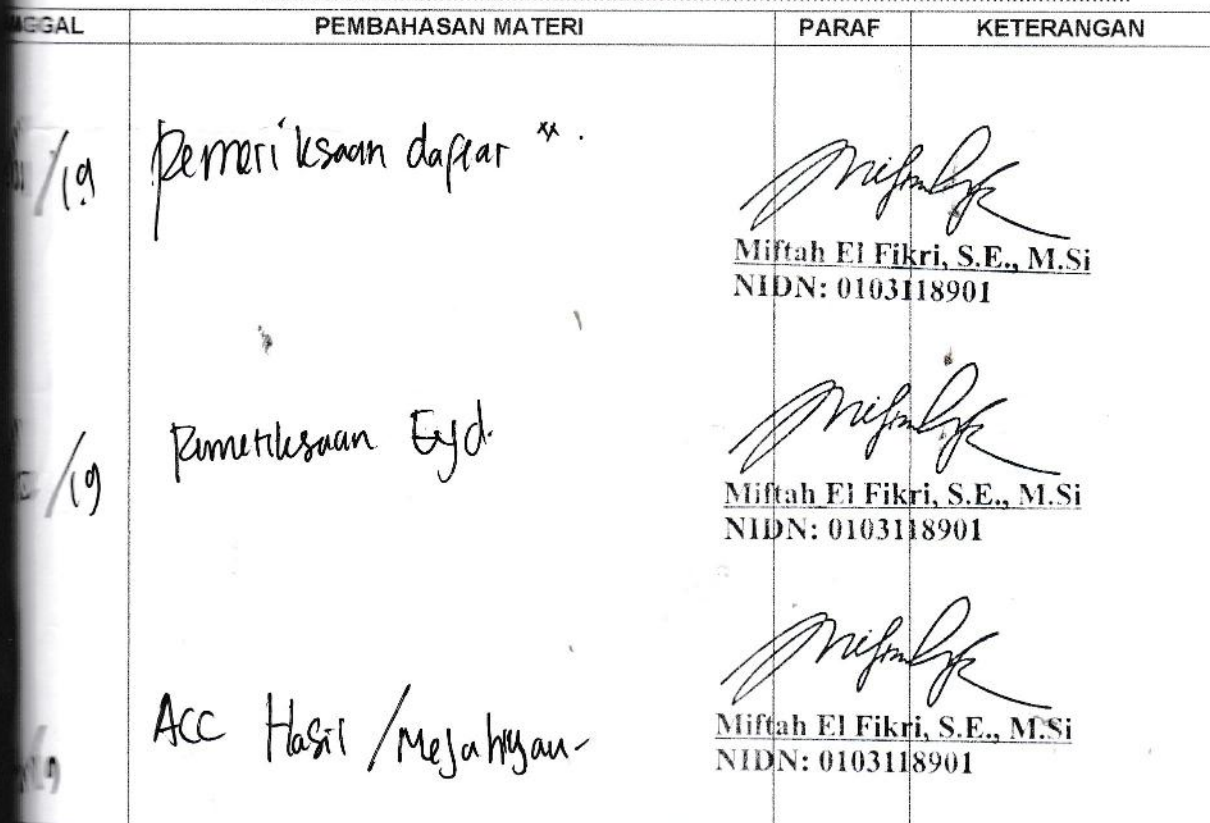 GGAL PEMBAHASAN MATERI PARAF KETERANGAN
/19 Pemeriksaan daftar
Miftah El Fikri, S.E., M.Si
NIDN: 0103118901
/19 Pemeriksaan Eyd.
Miftah El Fikri, S.E., M.Si
NIDN: 0103118901
ACC Hasil / Meja hijau
Miftah El Fikri, S.E., M.Si
NIDN: 0103118901